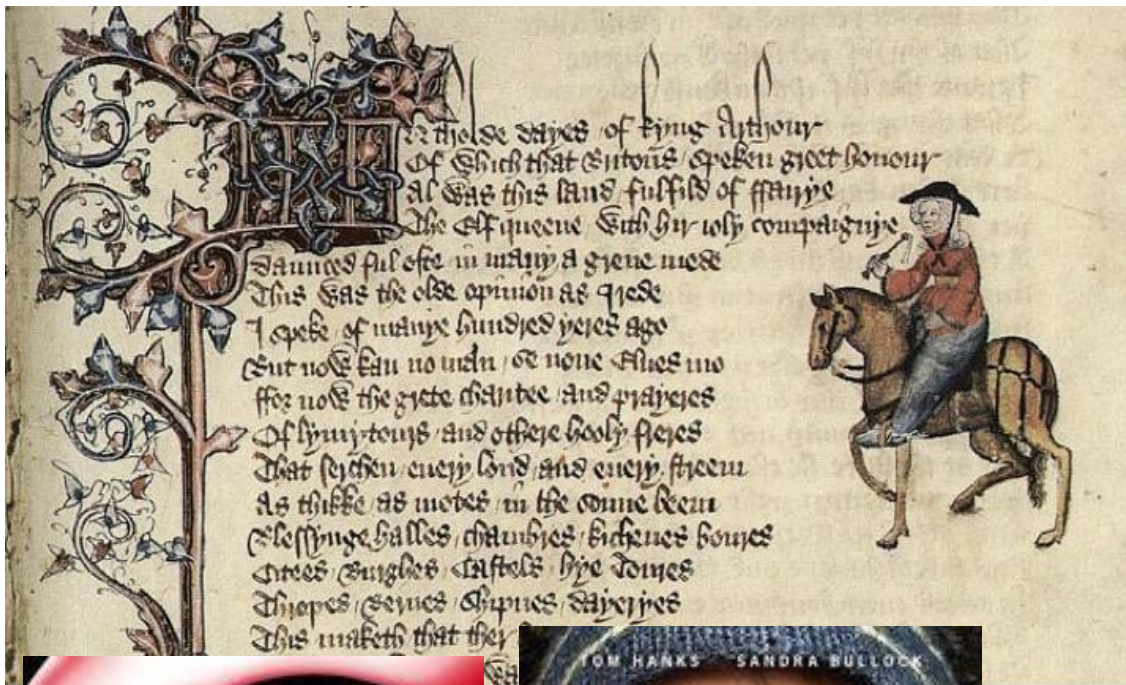 In tholde dayes of kyng Arthour
Of which that Britons speken greet honour
Al was this land fulfild of ffairye
The Elf queene with hir ioly compaignye
daunced ful ofte in many a grene mede
This was the olde opinion as I rede
I speke of manye hundred yeres ago
But now kan no man se none Elues mo
ffor now the grete charitee and prayeres
Of lymytours and othere hooly freres
That serchen euery lond and euery streem
As thikke as motes in the sonne beem
Blessynge halles chambres kichenes boures
Citees Burghes Castels hye Toures
Thropes Bernes Shipnes dayeryes
This maketh that ther
TOM HANKS SANDRA BULLOCK